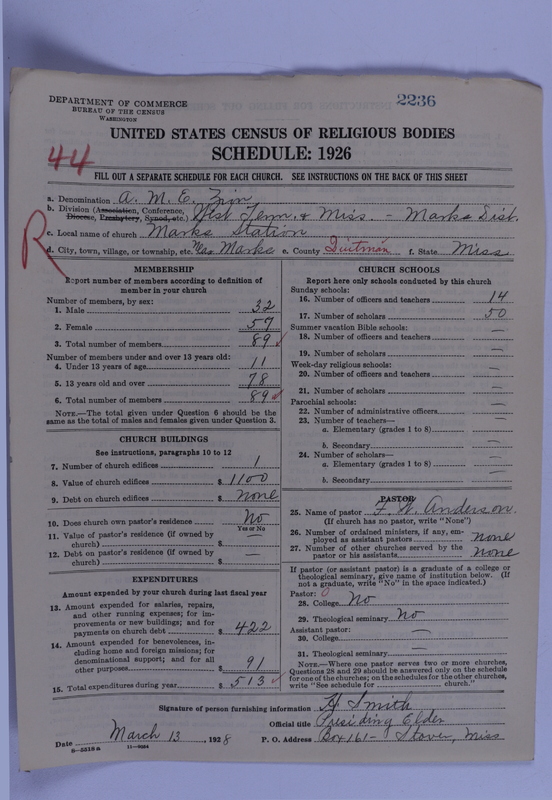 DEPARTMENT OF COMMERCE
BUREAU OF THE CENSUS
WASHINGTON
2236
UNITED STATES CENSUS OF RELIGIOUS BODIES
SCHEDULE: 1926
44
FILL OUT A SEPARATE SCHEDULE FOR EACH CHURCH. SEE INSTRUCTIONS ON THE BACK OF THIS SHEET
R
a. Denomination A. M. E. Zion
b. Division (Association, Conference, Diocese, Presbytery, Synod, etc.) West Tenn. & Miss. - Marks Dist.
c. Local name of church Marks Station
d. City, town, village, or township, etc. Near Marks e. County Quitman f. State Miss
MEMBERSHIP
Report number of members according to definition of member in your church
Number of members, by sex:
1. Male 32
2. Female 57
3. Total number of members 89
Number of members under and over 13 years old:
4. Under 13 years of age 11
5. 13 years old and over 78
6. Total number of members 89
NOTE.—The total given under Question 6 should be the same as the total of males and females given under Question 3.
CHURCH BUILDINGS
See instructions, paragraphs 10 to 12
7. Number of church edifices 1
8. Value of church edifices $ 1100
9. Debt on church edifices $ none
10. Does church own pastor's residence No
Yes or No
11. Value of pastor's residence (if owned by church) $ —
12. Debt on pastor's residence (if owned by church) $ —
EXPENDITURES
Amount expended by your church during last fiscal year
13. Amount expended for salaries, repairs, and other running expenses; for improvements or new building; and for payments on church debt $ 422
14. Amount expended for benevolences, including home and foreign missions; for denominational support; and for all other purposes $ 91
15. Total expenditures during year $ 513
CHURCH SCHOOLS
Report here only schools conducted by this church
Sunday schools:
16. Number of officers and teachers 14
17. Number of scholars 50
Summer vacation Bible schools:
18. Number of officers and teachers —
19. Number of scholars —
Week-day religious schools:
20. Number of officers and teachers —
21. Number of scholars —
Parochial schools:
22. Number of administrative officers —
23. Number of teachers—
a. Elementary (grades 1 to 8) —
b. Secondary —
24. Number of scholars—
a. Elementary (grades 1 to 8) —
b. Secondary —
PASTOR
25. Name of pastor F. W. Anderson.
(If church has no pastor, write "None")
26. Number of ordained ministers, if any, employed as assistant pastors none
27. Number of other churches served by the pastor or his assistants none
If pastor (or assistant pastor) is a graduate of a college or theological seminary, give name of institution below. (If not a graduate, write "No" in the space indicated.)
Pastor: 0
28. College No
29. Theological seminary No
Assistant pastor:
30. College —
31. Theological seminary —
NOTE.—Where one pastor serves two or more churches, Questions 28 and 29 should be answered only on the schedule for one of the churches; on the schedules for the other churches, write "See schedule for church."
Signature of person furnishing information Smith
Official title Presiding Elder
Date March 13, 1928 P. O. Address Box 161- Stover, Miss
8-5518a 11-9084